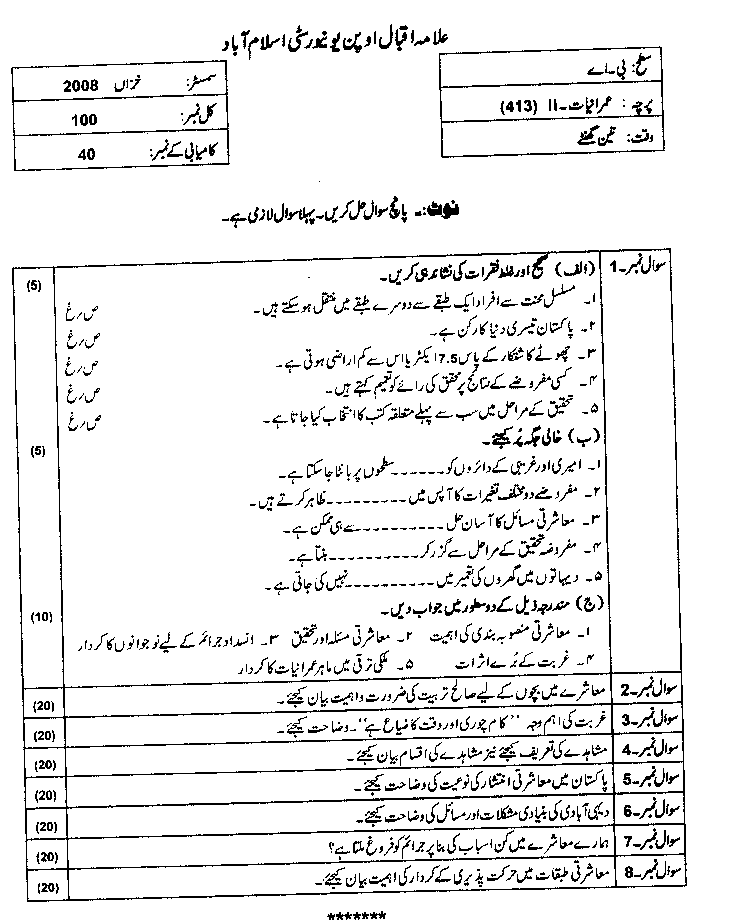 علامہ اقبال اوپن یونیورسٹی اسلام آباد
سطح: بی۔اے
پرچہ: عمرانیات۔II (413)
وقت: تین گھنٹے
سمسٹر: خزاں 2008
کل نمبر: 100
کامیابی کے نمبر: 40
نوٹ:۔ پانچ سوال حل کریں۔ پہلا سوال لازمی ہے۔
سوال نمبر۔1 (الف) صحیح اور غلط فقرات کی نشاندہی کریں۔ (5)
۱۔ مسلسل محنت سے افراد ایک طبقے سے دوسرے طبقے میں منتقل ہو سکتے ہیں۔ ص/غ
۲۔ پاکستان تیسری دنیا کا رکن ہے۔ ص/غ
۳۔ چھوٹے کاشتکار کے پاس 7.5 ایکڑ یا اس سے کم اراضی ہوتی ہے۔ ص/غ
۴۔ کسی مفروضے کے نتائج پر محقق کی رائے کو تعمیم کہتے ہیں۔ ص/غ
۵۔ تحقیق کے مراحل میں سب سے پہلے متعلقہ کتب کا انتخاب کیا جاتا ہے۔ ص/غ
(ب) خالی جگہ پُر کیجئے۔ (5)
۱۔ امیری اور غریبی کے دائروں کو ۔۔۔۔۔۔ سطحوں پر بانٹا جا سکتا ہے۔
۲۔ مفروضے دو مختلف تغیرات کا آپس میں ۔۔۔۔۔۔۔۔۔ ظاہر کرتے ہیں۔
۳۔ معاشرتی مسائل کا آسان حل ۔۔۔۔۔۔۔۔۔۔ سے ہی ممکن ہے۔
۴۔ مفروضہ تحقیق کے مراحل سے گزر کر ۔۔۔۔۔۔۔۔۔۔ بنتا ہے۔
۵۔ دیہاتوں میں گھروں کی تعمیر میں ۔۔۔۔۔۔۔۔۔۔ نہیں کی جاتی ہے۔
(ج) مندرجہ ذیل کے دو سطور میں جواب دیں۔ (10)
۱۔ معاشرتی منصوبہ بندی کی اہمیت ۲۔ معاشرتی مسئلہ اور تحقیق ۳۔ انسداد جرائم کے لیے نوجوانوں کا کردار
۴۔ غربت کے بُرے اثرات ۵۔ ملکی ترقی میں ماہر عمرانیات کا کردار
سوال نمبر۔2 معاشرے میں بچوں کے لیے صالح تربیت کی ضرورت و اہمیت بیان کیجئے۔ (20)
سوال نمبر۔3 غربت کی اہم وجہ "کام چوری اور وقت کا ضیاع ہے"۔ وضاحت کیجئے۔ (20)
سوال نمبر۔4 مشاہدے کی تعریف کیجئے نیز مشاہدے کی اقسام بیان کیجئے۔ (20)
سوال نمبر۔5 پاکستان میں معاشرتی انتشار کی نوعیت کی وضاحت کیجئے۔ (20)
سوال نمبر۔6 دیہی آبادی کی بنیادی مشکلات اور مسائل کی وضاحت کیجئے۔ (20)
سوال نمبر۔7 ہمارے معاشرے میں کن اسباب کی بنا پر جرائم کو فروغ ملتا ہے؟ (20)
سوال نمبر۔8 معاشرتی طبقات میں حرکت پذیری کے کردار کی اہمیت بیان کیجئے۔ (20)
*******